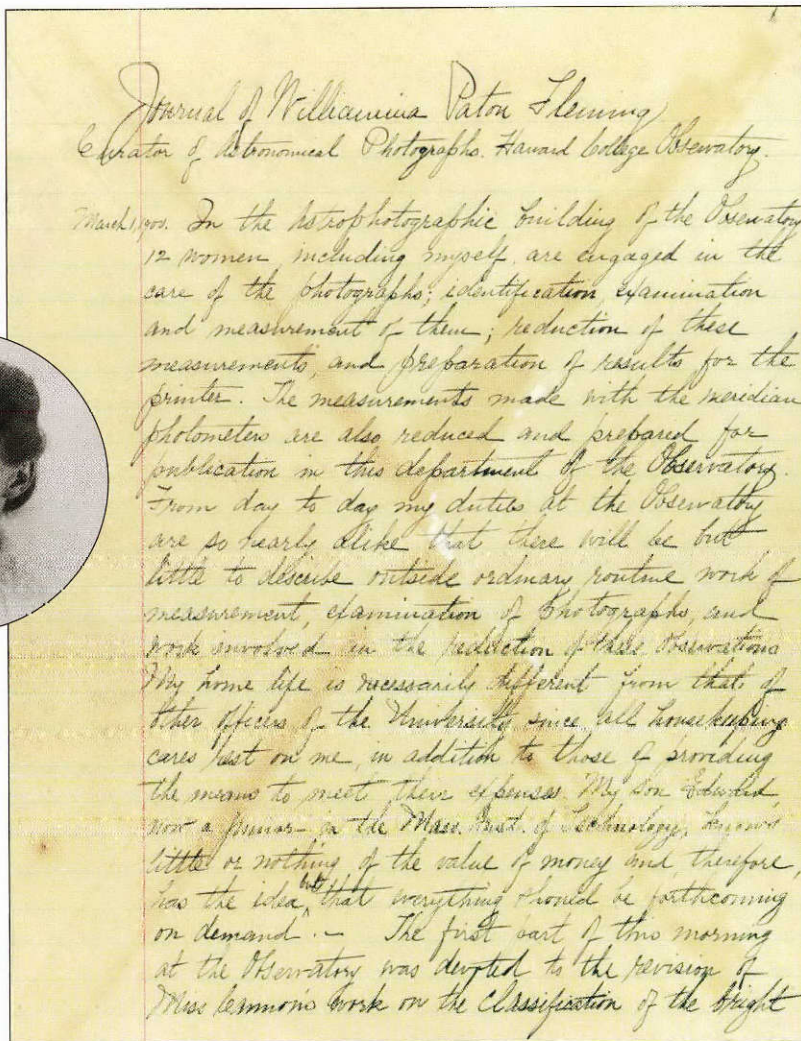 Journal of Williamina Paton Fleming
Curator of Astronomical Photographs. Harvard College Observatory.
March 1, 1900. In the Astrophotographic building of the Observatory
12 women, including myself, are engaged in the
care of the photographs; identification, examination
and measurement of them; reduction of these
measurements, and preparation of results for the
printer. The measurements made with the meridian
photometers are also reduced and prepared for
publication in this department of the Observatory.
From day to day my duties at the Observatory
are so nearly alike that there will be but
little to describe outside ordinary routine work of
measurement, examination of photographs, and
work involved in the reduction of these observations
My home life is necessarily different from that of
other officers of the University since all housekeeping
cares rest on me, in addition to those of providing
the means to meet their expenses. My son Edward,
now a junior in the Mass. Inst. of Technology, knows
little or nothing of the value of money and, therefore,
has the idea that everything should be forthcoming
on demand. — The first part of this morning
at the Observatory was devoted to the revision of
Miss Cannon's work on the classification of the bright